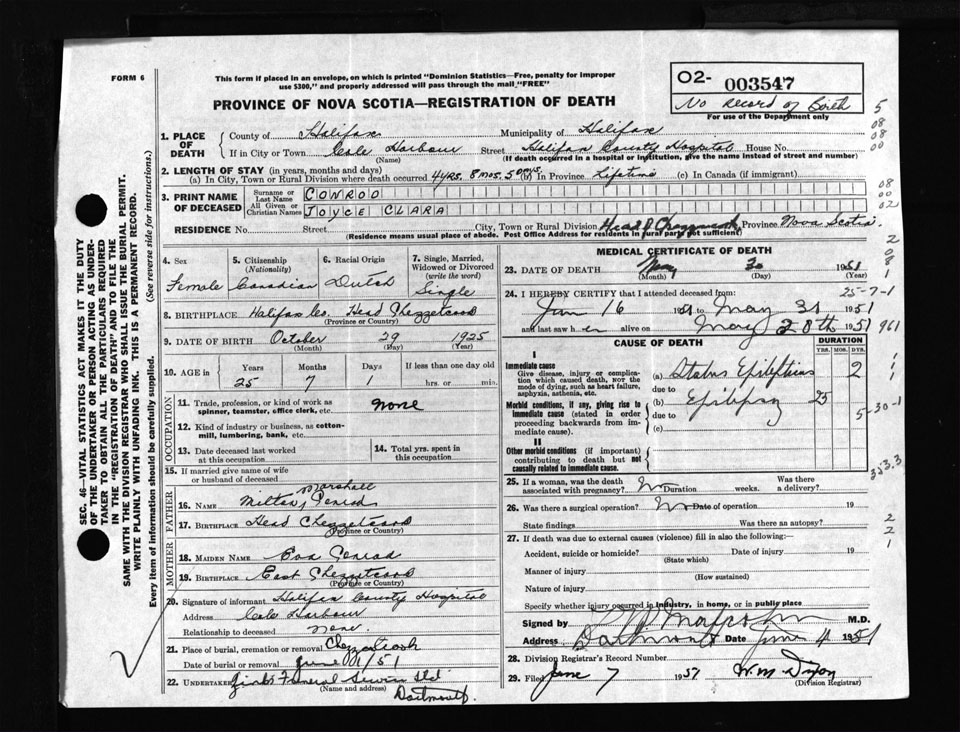 FORM 6
This form if placed in an envelope, on which is printed "Dominion Statistics—Free, penalty for improper
use $300," and properly addressed will pass through the mail "FREE"
PROVINCE OF NOVA SCOTIA—REGISTRATION OF DEATH
O2- 003547
No Record of Birth
For use of the Department only
5
08
08
00
1. PLACE OF DEATH
County of Halifax Municipality of Halifax
If in City or Town Cole Harbour Street Halifax County Hospital House No.
(Name) (If death occurred in a hospital or institution, give the name instead of street and number)
2. LENGTH OF STAY (in years, months and days)
(a) In City, Town or Rural Division where death occurred 4 yrs. 8 mos. 5 days (b) In Province Lifetime (c) In Canada (if immigrant)
3. PRINT NAME OF DECEASED
Surname or Last Name CONROD
All Given or Christian Names JOYCE CLARA
08
00
02
RESIDENCE No. Street City, Town or Rural Division Head of Chezzetcook, Province Nova Scotia
(Residence means usual place of abode. Post Office Address for residents in rural parts not sufficient)
4. Sex Female
5. Citizenship (Nationality) Canadian
6. Racial Origin Dutch
7. Single, Married, Widowed or Divorced (write the word) Single
8. BIRTHPLACE Halifax Co. Head Chezzetcook
(Province or Country)
9. DATE OF BIRTH October 29 1925
(Month) (Day) (Year)
10. AGE in Years Months Days If less than one day old
25 7 1 hrs. or min.
OCCUPATION
11. Trade, profession, or kind of work as spinner, teamster, office clerk, etc. none
12. Kind of industry or business, as cotton-mill, lumbering, bank, etc.
13. Date deceased last worked at this occupation
14. Total yrs. spent in this occupation
15. If married give name of wife or husband of deceased
FATHER
16. NAME Milton Marshall Conrod
17. BIRTHPLACE Head Chezzetcook
(Province or Country)
MOTHER
18. MAIDEN NAME Eva Conrad
19. BIRTHPLACE East Chezzetcook
(Province or Country)
20. Signature of informant Halifax County Hospital
Address Cole Harbour
Relationship to deceased None.
21. Place of burial, cremation or removal Chezzetcook
Date of burial or removal June 1/51
22. UNDERTAKER Zink's Funeral Service Ltd
(Name and address) Dartmouth.
MEDICAL CERTIFICATE OF DEATH
23. DATE OF DEATH May 30 1951
(Month) (Day) (Year)
2
0
8
1
24. I HEREBY CERTIFY that I attended deceased from: 25-7-1
Jan 16 1951 to May 31 1951
and last saw her alive on May 28th 1951
961
CAUSE OF DEATH
DURATION
YRS. MOS. DYS.
I
Immediate cause
Give disease, injury or complication which caused death, NOT the mode of dying, such as heart failure, asphyxia, asthenia, etc.
(a) Status Epilepticus 2
due to
Morbid conditions, if any, giving rise to immediate cause (stated in order proceeding backwards from immediate cause).
(b) Epilepsy 25
due to
(c)
5-30-1
II
Other morbid conditions (if important) contributing to death but not causally related to immediate cause.
353.3
25. If a woman, was the death associated with pregnancy? No Duration weeks. Was there a delivery?
26. Was there a surgical operation? No Date of operation 19
State findings Was there an autopsy?
2
2
1
27. If death was due to external causes (violence) fill in also the following:
Accident, suicide or homicide? Date of injury 19
(State which)
Manner of injury
(How sustained)
Nature of injury
Specify whether injury occurred in industry, in home, or in public place
Signed by Malcolm M.D.
Address Dartmouth Date June 4 1951
28. Division Registrar's Record Number
29. Filed June 7 1951 W. M. Dixon
(Division Registrar)
SEC. 46—VITAL STATISTICS ACT MAKES IT THE DUTY
OF THE UNDERTAKER OR PERSON ACTING AS UNDER-
TAKER TO OBTAIN ALL THE PARTICULARS REQUIRED
IN THE "REGISTRATION OF DEATH" AND TO FILE THE
SAME WITH THE DIVISION REGISTRAR WHO SHALL ISSUE THE BURIAL PERMIT.
WRITE PLAINLY WITH UNFADING INK. THIS IS A PERMANENT RECORD.
Every item of information should be carefully supplied. (See reverse side for instructions.)